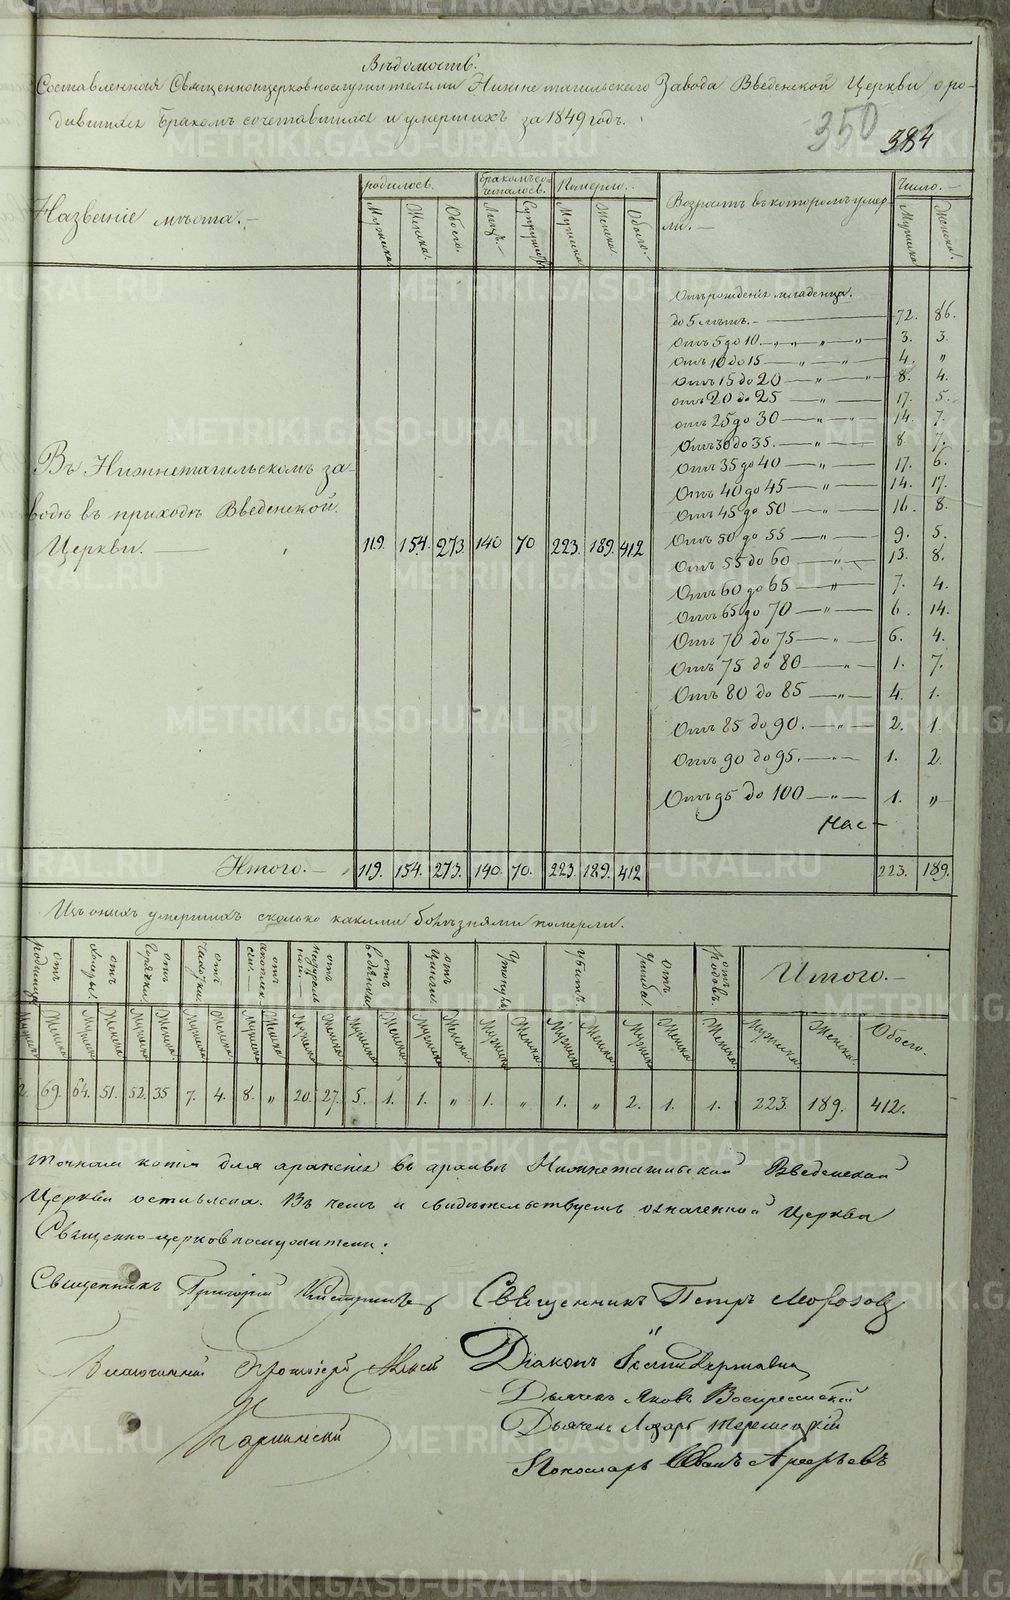 Вѣдомость.
Составленная Священноцерковнослужителями Нижнетагильскаго Завода Введенской Церкви о ро-
дившихся бракомъ сочетавшихся и умершихъ за 1849 годъ.
350 384
Названіе мѣста.
родилось. бракомъ со-четалось. Померло. Возрастъ въ которомъ умер-ли. Число.
Мужска. Женска. Обоего. Лицъ. Супружествъ Мужска Женска. Обоего. Мужска Женска.
Отъ рожденія младенца.
до 5 лѣтъ. 72. 86.
Отъ 5 до 10. „ „ „ „ 3. 3.
Отъ 10 до 15 „ „ 4. „
Отъ 15 до 20 „ „ 8. 4.
отъ 20 до 25 „ 17. 5.
отъ 25 до 30 „ „ 14. 7.
Отъ 30 до 35. „ 8. 7.
Отъ 35 до 40 „ 17. 6.
Отъ 40 до 45 „ 14. 17.
Отъ 45 до 50 „ 16. 8.
Въ Нижнетагильскомъ за-
водѣ въ приходѣ Введенской
Церкви. 119. 154. 273. 140 70 223. 189. 412
Отъ 50 до 55 „ 9. 5.
Отъ 55 до 60 „ 13. 8.
Отъ 60 до 65 „ 7. 4.
Отъ 65 до 70 „ 6. 14.
Отъ 70 до 75 „ 6. 4.
Отъ 75 до 80 „ 1. 7.
Отъ 80 до 85 „ 4. 1.
Отъ 85 до 90. „ 2. 1.
Отъ 90 до 95. „ 1. 2.
Отъ 95 до 100 „ 1. „
Итого. 119. 154. 273. 140. 70. 223. 189. 412 223. 189.
Изъ оныхъ умершихъ сколько какими болѣзнями померли.
отъ родимца отъ холеры. отъ горячки отъ чахотки отъ апоплексіи. отъ отъ водяной отъ цынги. Утонулъ Убитъ. отъ ушиба. отъ родовъ. Итого.
Мужска Женска. Мужска Женска. Мужска Женска. Мужска Женска. Мужска Женска. Мужска Женска. Мужска Женска. Мужска Женска. Мужска Женска. Мужска Женска. Мужска Женска. Женска. Мужска Женска. Обоего.
2. 69. 64. 51. 52. 35 7. 4. 8. „ 20. 27. 5. 1. 1. „ 1. „ 1. „ 2. 1. 1. 223. 189. 412.
Точная копія для храненія въ архивѣ Нижнетагильской Введенской
Церкви оставлена. Въ чемъ и свидѣтельствуемъ означенной Церкви
Священно-церковнослужители:
Священникъ Григорій
Священникъ Петръ Морозовъ
Благочинный Протоіерей Алексѣй
Карпинскій
Діаконъ
Дьячекъ Яковъ Воскресенскій
Дьячекъ Лазарь
Пономарь Иванъ Арефьевъ
METRIKI.GASO-URAL.RU